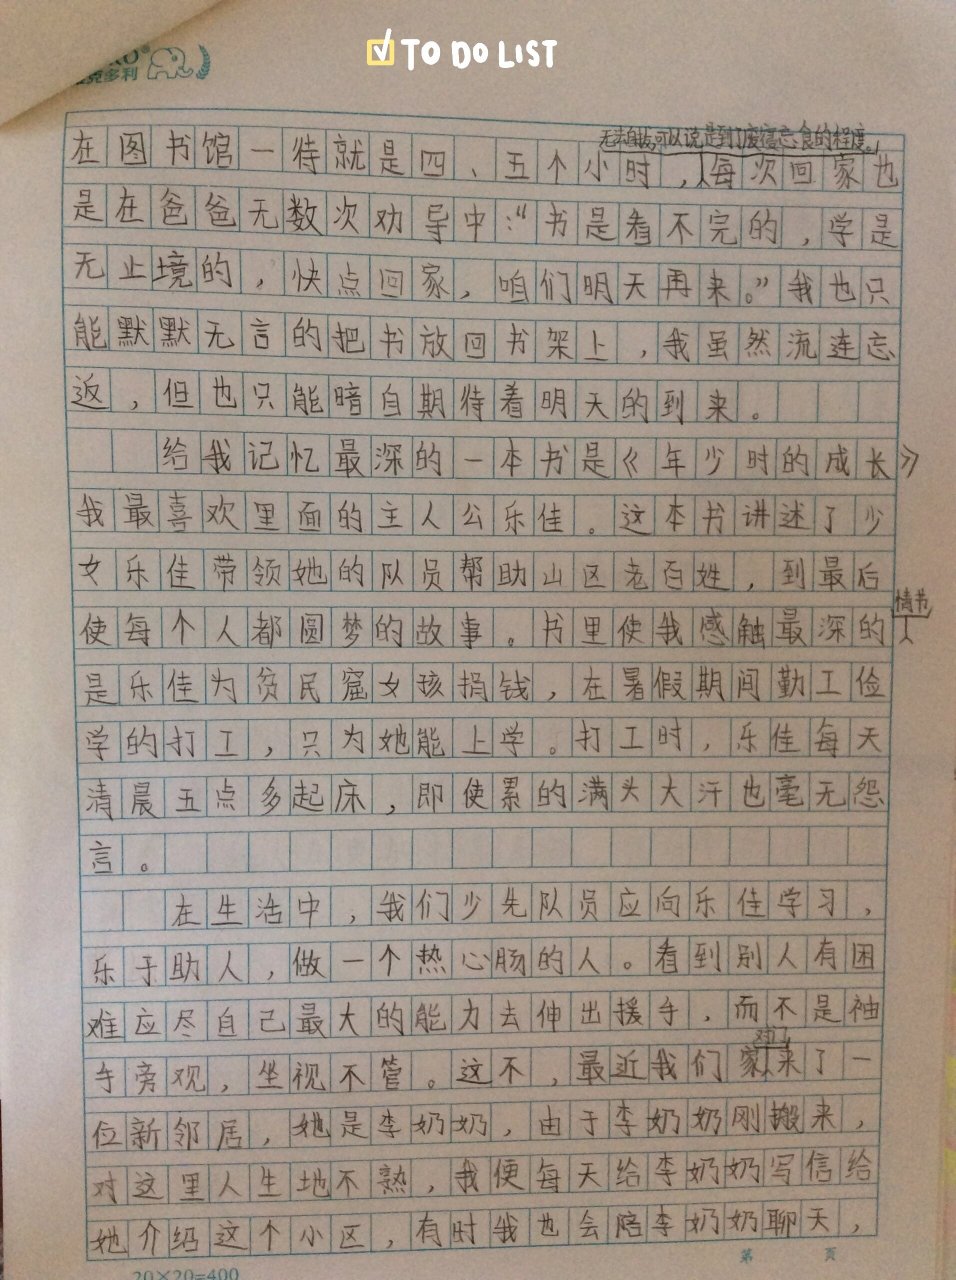 TO DO LIST
克多利
无法自拔,可以说是到了废寝忘食的程度。
在图书馆一待就是四、五个小时,每次回家也
是在爸爸无数次劝导中:“书是看不完的,学是
无止境的,快点回家,咱们明天再来。”我也只
能默默无言的把书放回书架上,我虽然流连忘
返,但也只能暗自期待着明天的到来。
给我记忆最深的一本书是《年少时的成长》
我最喜欢里面的主人公乐佳。这本书讲述了少
女乐佳带领她的队员帮助山区老百姓,到最后
情节
使每个人都圆梦的故事。书里使我感触最深的
是乐佳为贫民窟女孩捐钱,在暑假期间勤工俭
学的打工,只为她能上学。打工时,乐佳每天
清晨五点多起床,即使累的满头大汗也毫无怨
言。
在生活中,我们少先队员应向乐佳学习,
乐于助人,做一个热心肠的人。看到别人有困
难应尽自己最大的能力去伸出援手,而不是袖
手旁观,坐视不管。这不,最近我们家来了一
位新邻居,她是李奶奶,由于李奶奶刚搬来,
对这里人生地不熟,我便每天给李奶奶写信给
她介绍这个小区,有时我也会陪李奶奶聊天,
第 页
20×20=400